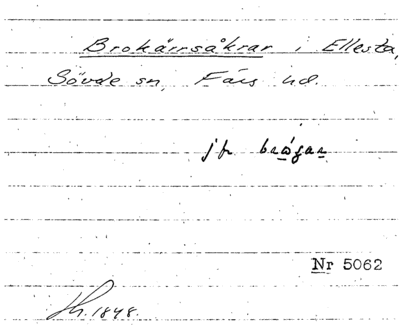 Brokärrsåkrar i Ellesta,
Sövde sn, Färs hd.
jfr brågar
Nr 5062
1848.